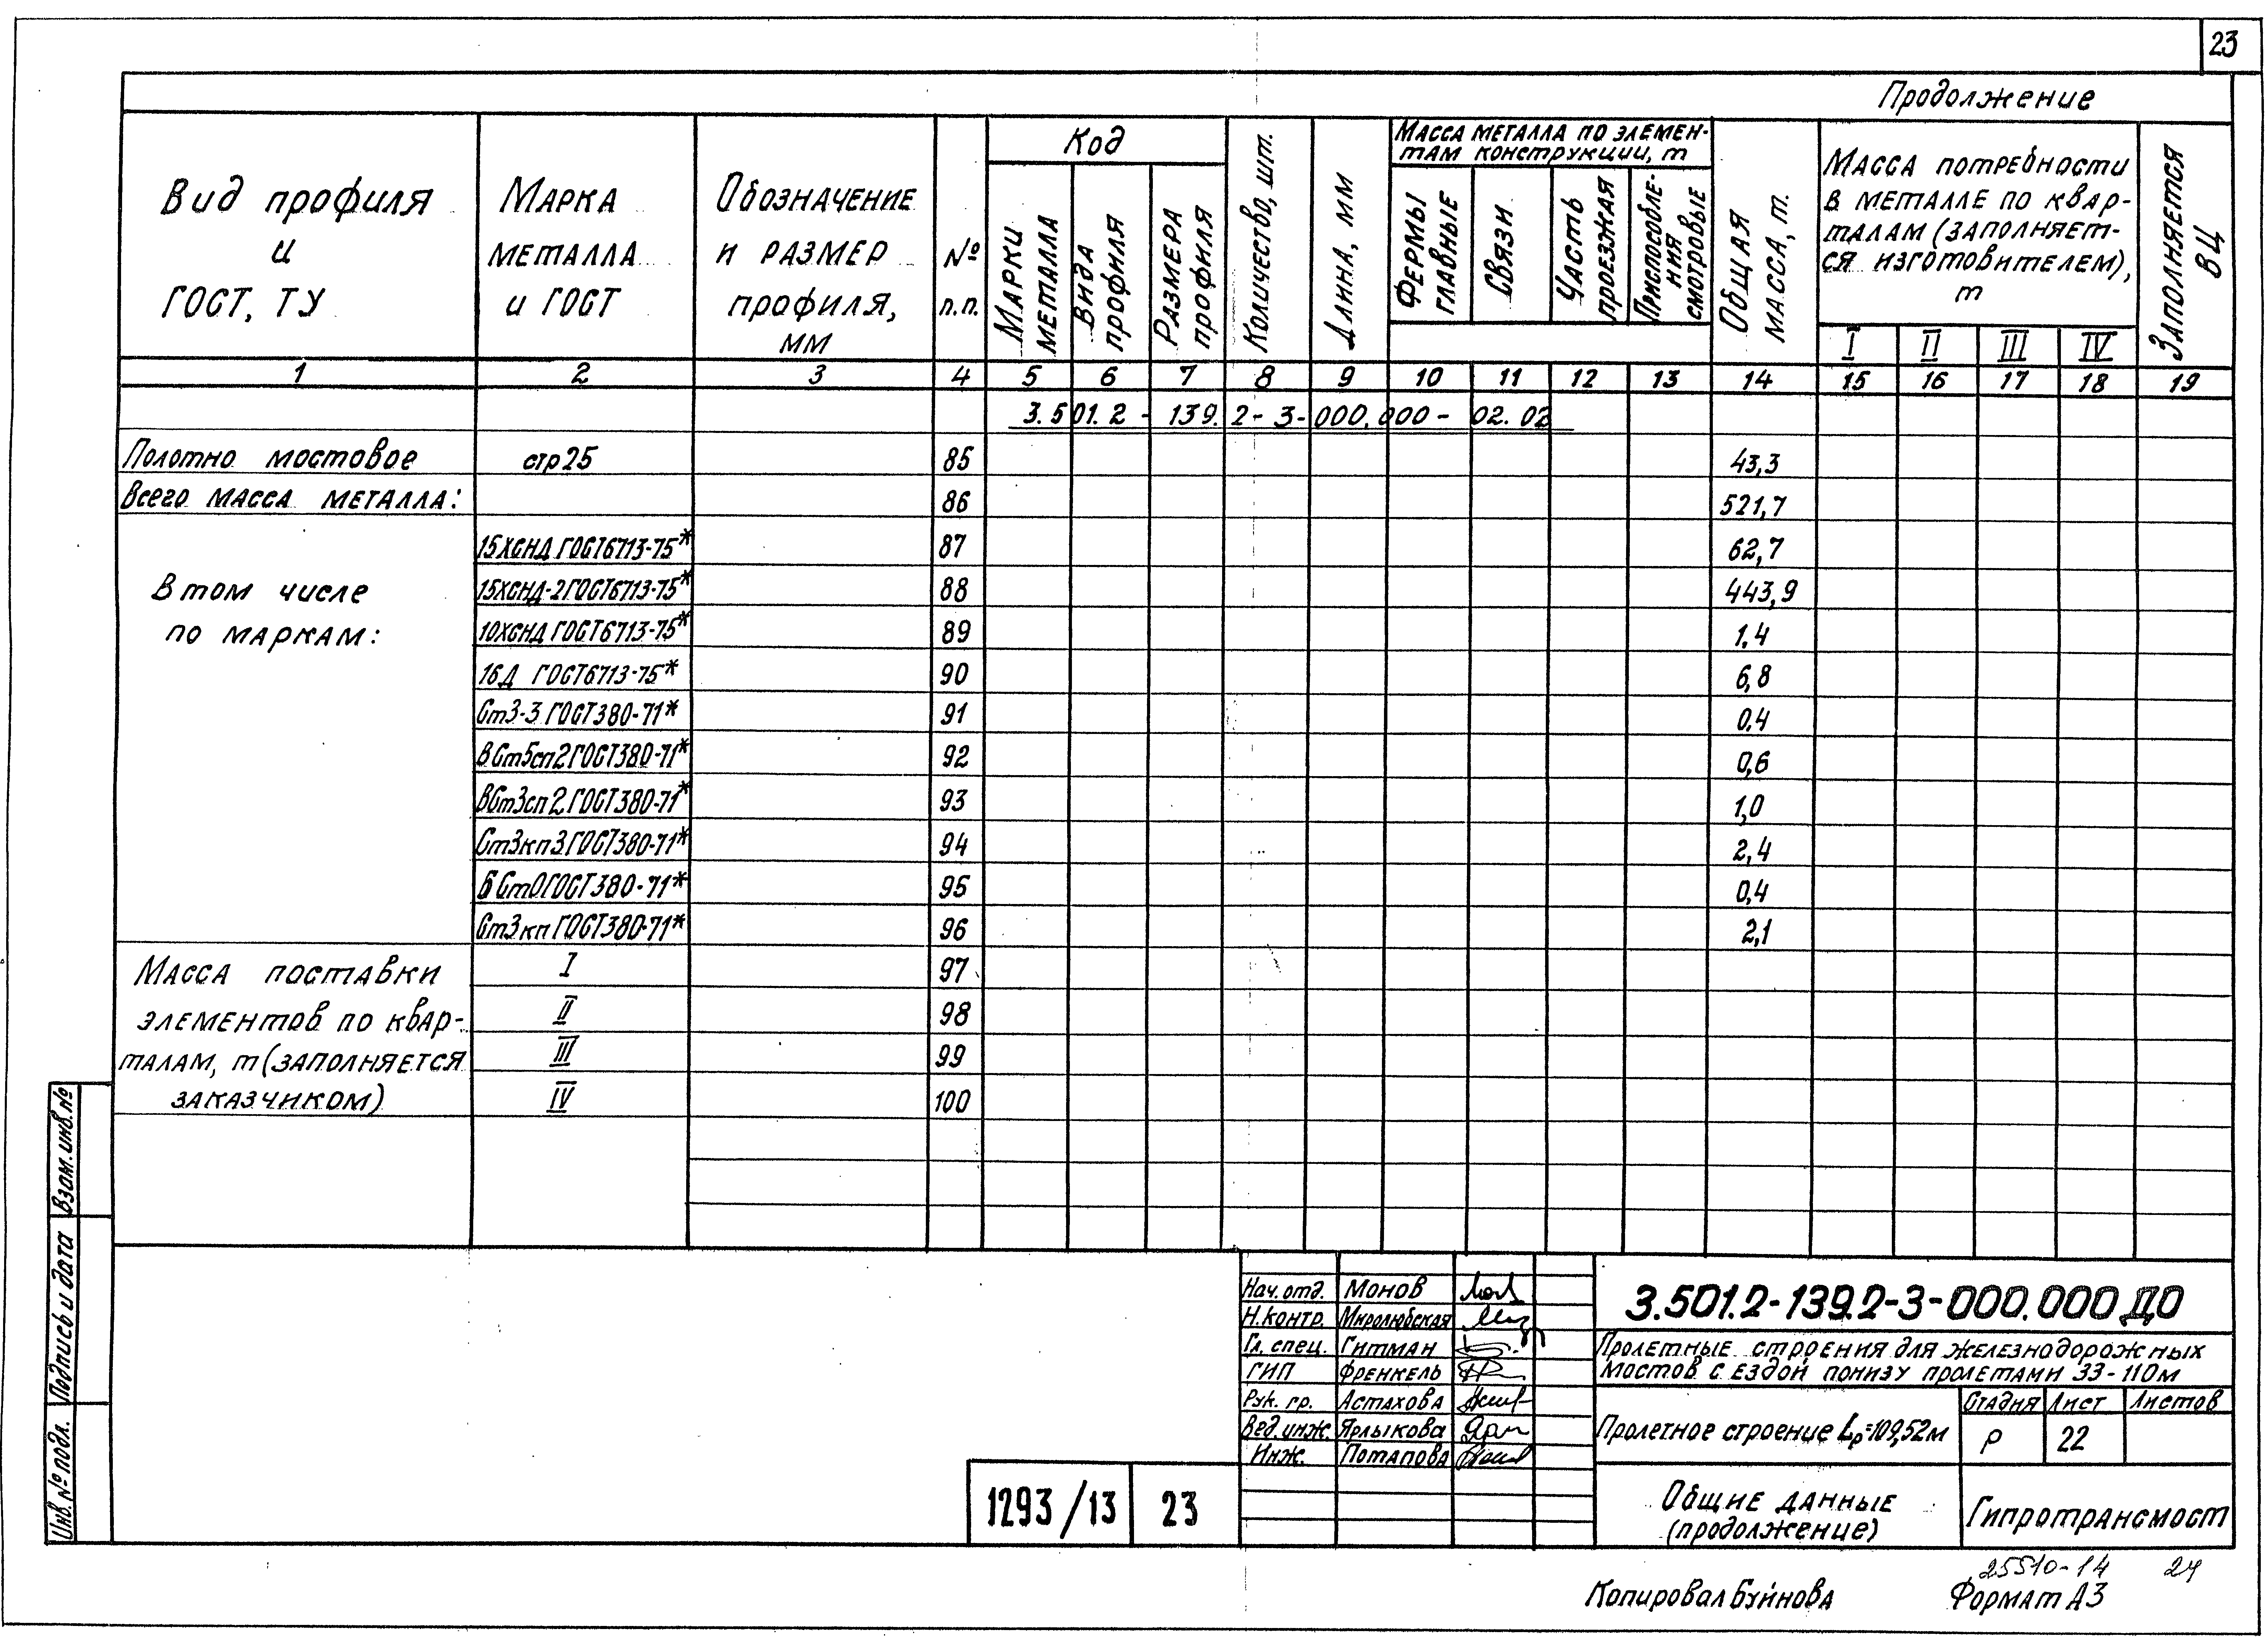 23
Продолжение
Вид профиля и ГОСТ, ТУ
Марка металла и ГОСТ
Обозначение и размер профиля, мм
№ п.п.
Код
Марки металла
Вида профиля
Размера профиля
Количество, шт.
Длина, мм
Масса металла по элемен-
там конструкции, т
Фермы главные
Связи
Часть проезжая
Приспособле-
ния смотровые
Общая масса, т.
Масса потребности
в металле по квар-
талам (заполняет-
ся изготовителем),
т
I II III IV
Заполняется ВЦ
1 2 3 4 5 6 7 8 9 10 11 12 13 14 15 16 17 18 19
3.501.2 - 139.2 - 3 - 000.000 - 02.02
Полотно мостовое стр25 85 43,3
Всего масса металла: 86 521,7
В том числе
по маркам:
15ХСНД ГОСТ6713-75* 87 62,7
15ХСНД-2ГОСТ6713-75* 88 443,9
10ХСНД ГОСТ6713-75* 89 1,4
16Д ГОСТ6713-75* 90 6,8
Ст3-3 ГОСТ380-71* 91 0,4
ВСт5сп2ГОСТ380-71* 92 0,6
ВСт3сп2ГОСТ380-71* 93 1,0
Ст3кп3ГОСТ380-71* 94 2,4
БСт0ГОСТ380-71* 95 0,4
Ст3кп ГОСТ380-71* 96 2,1
Масса поставки
элементов по квар-
талам, т (заполняется
заказчиком)
I 97
II 98
III 99
IV 100
Взам. инв.№
Подпись и дата
Инв.№подл.
1293/13 23
Нач. отд. Монов
Н.контр. Миролюбская
Гл. спец. Гитман
ГИП Френкель
Рук. гр. Астахова
Вед.инж. Ярлыкова
Инж. Потапова
3.501.2-139.2-3-000.000 ДО
Пролетные строения для железнодорожных
мостов с ездой понизу пролетами 33-110м
Пролетное строение Lр=109,52м
Стадия Лист Листов
Р 22
Общие данные
(продолжение)
Гипротрансмост
25510-14 24
Копировал Буйнова Формат А3